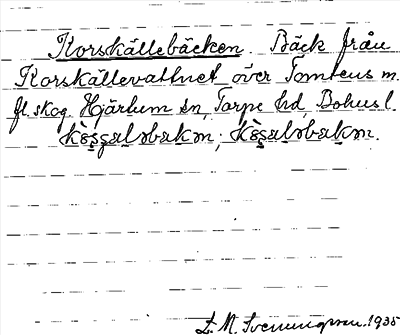 Korskällebäcken. Bäck från
Korskällevattnet över Tomtens m.
fl. skog. Hjärtum sn, Torpe hd, Bohusl.
S. M. Svenningsson. 1935